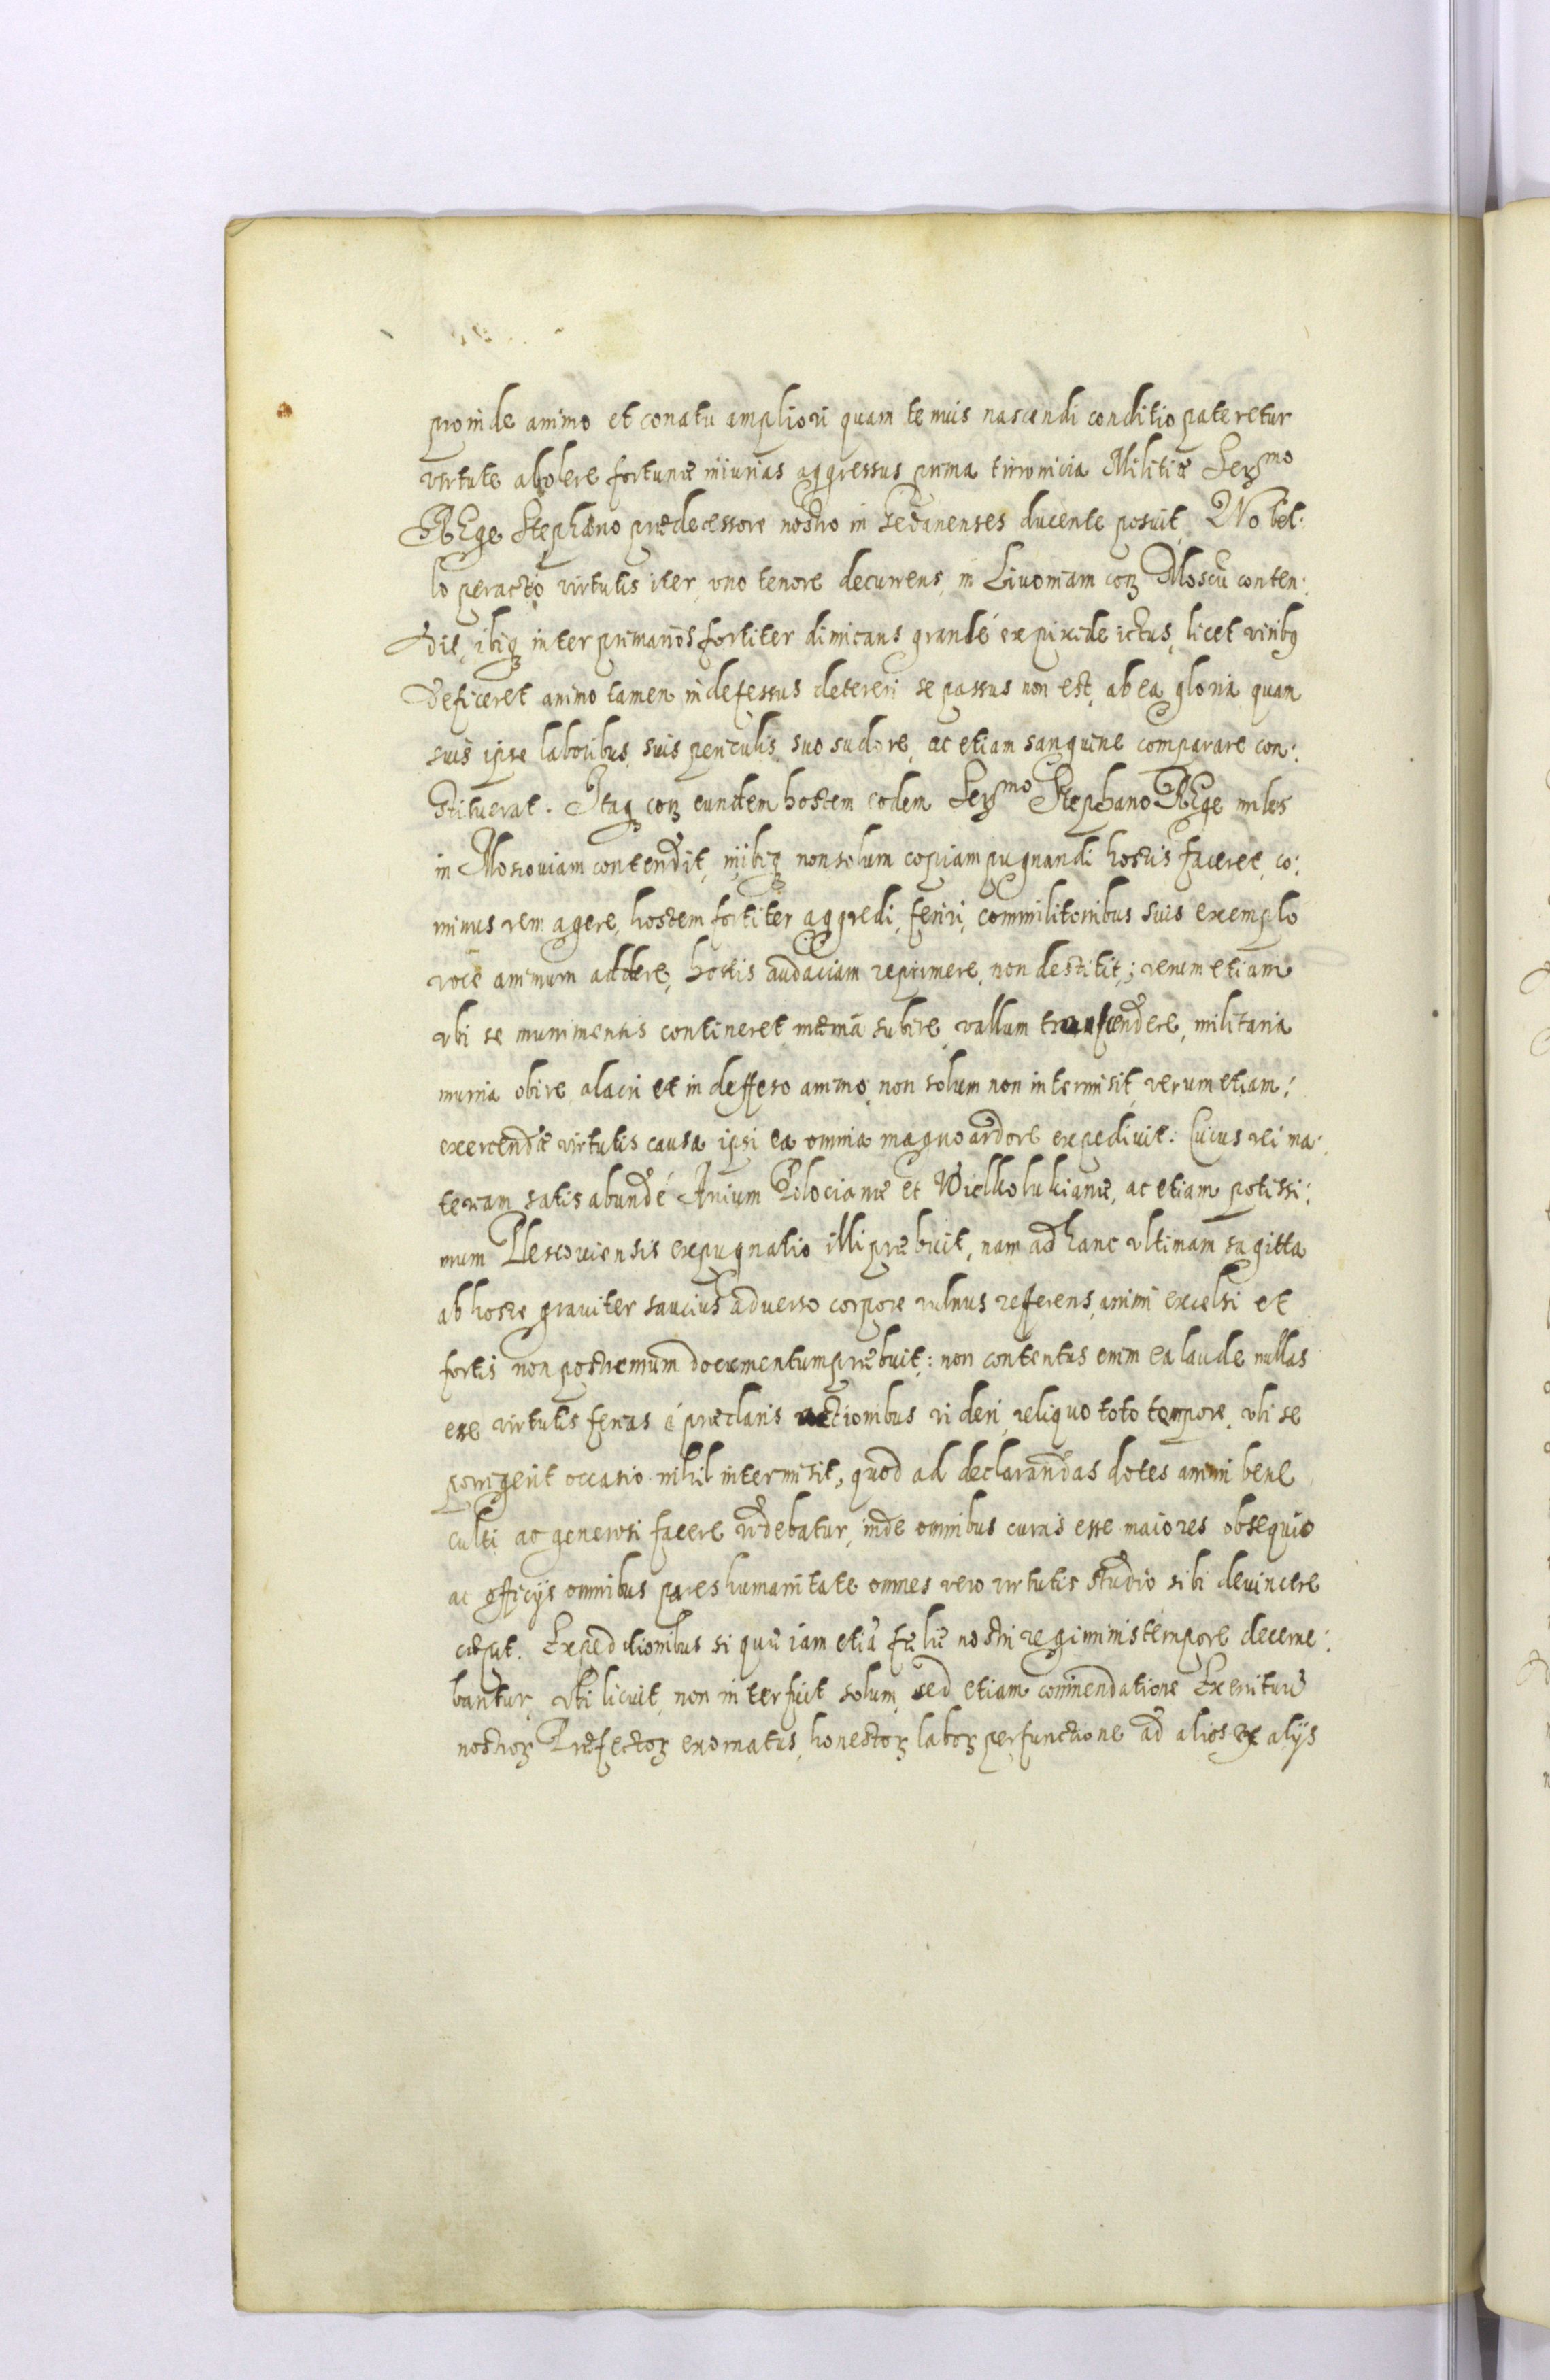 proinde animo et conatu ampliori quam tenuis nascendi conditio pateretur
virtute abolere fortunæ iniurias aggressus prima tirrownicia Militiæ Serꝫmo
REge Stephano prædecessore nostro in Gedanenses ducente posuit, Quo bel:
lo peracto virtutis iter, vno tenore decurrens, in Livoniam conꝫ Moscū conten:
dit, ibiqꝫ inter primanos fortiter dimicans grandé ex pixide ictus, licet viribꝫ
deficeret animo tamen indefessus detereri se passus non est, ab ea gloria quam
suis ipse laboribus, suis periculis, suo sudore, ac etiam sanguine comparare con:
stituerat. Itaqꝫ conꝫ eundem hostem eodem Serꝫmo Stephano REge miles
in Moscoviam contendit, inibiqꝫ non solum copiam pugnandi hostis faceret, co:
minus rem agere, hostem fortiter aggredi, feriri, commilitonibus suis exemplo
voce animum addere, hostis audaciam reprimere, non destitit; verum etiam
vbi se munimentis contineret mænia subire, vallum transcendere, militaria
munia obire, alacri et in deffeso animo non solum non intermisit, verum etiam:
exercendæ virtutis causa ipsi ea omnia magno ardore expedivit: Cuius rei ma:
teriam satis abundé Arcium Polocianæ et Wielkolukianæ, ac etiam potissi:
mum Plescoviensis expugnatio illi præbuit, nam ad hanc vltimam sagitta
ab hoste graviter saucius adverso corpore vulnus referens, animi excelsi et
fortis non postremum documentum præbuit: non contentus enim ea laude nullas
esse virtutis ferias á præclaris actionibus videri, reliquo toto tempore, vbi se
porrigerit occasio nihil intermisit, quod ad declarandas dotes animi bene
culti ac generosi facere videbatur, inde omnibus curas esse maiores obsequio
ac officijs omnibus pares humanitate omnes vero virtutis studio sibi devincere
cæpit. Expeditionibus si quæ iam etiā fælic nostri regiminis tempore decerne:
bantur, vbi licuit, non interfuit solum, sed etiam commendatione Exercituū
nostroꝝ Præfectoꝝ exornatus, honestoꝝ laboꝝ perfunctione ad alios ex alijs